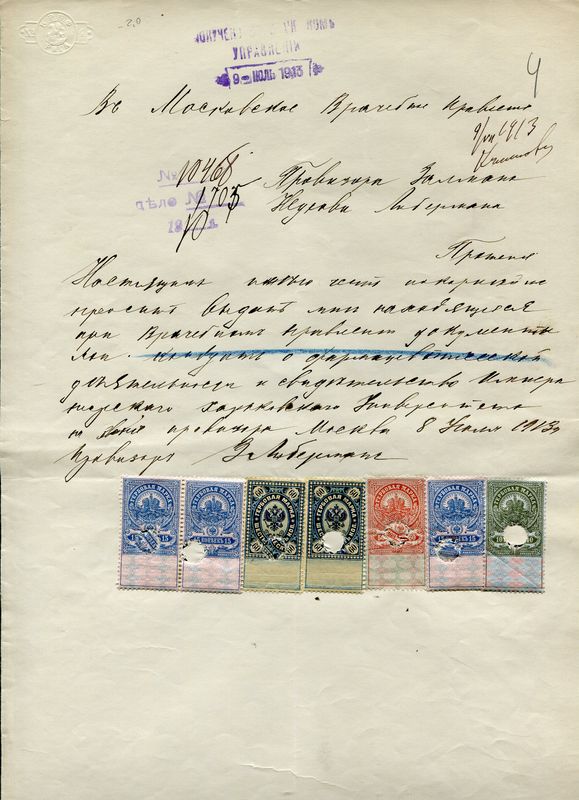 2,0
ПОЛУЧЕНО
УПРАВЛЕНIИ
9 ІЮЛЬ 1913
4
Въ Московское Врачебное Правленіе
9/VII 1913
№ 10468
Дѣло № 1705
18
Провизора Залмана
Нухова Либермана
Прошеніе
Настоящимъ имѣю честь покорнѣйше
просить выдать мнѣ находящіеся
при Врачебномъ Правленіи документы
мои о фармацевтической
дѣятельности и свидѣтельство Импера
торскаго Харьковскаго Университета
на провизора Москва 8 Іюля 1913 г
Провизоръ З Либерманъ
ГЕРБОВАЯ МАРКА
15 КОПѢЕКЪ 15
ГЕРБОВАЯ МАРКА
КОПѢЕКЪ 15
60 60
ГЕРБОВАЯ МАРКА
60 60
60 60
ГЕРБОВАЯ МАРКА
60 60
ГЕРБОВАЯ МАРКА
ГЕРБОВАЯ МАРКА
15
ГЕРБОВАЯ МАРКА
10